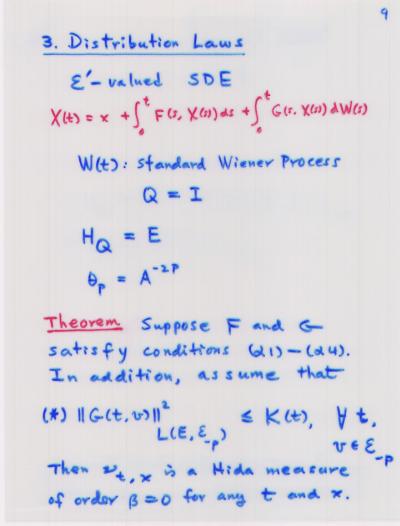 9
3. Distribution Laws
ℰ′-valued SDE
X(t) = x + ∫₀ᵗ F(s, X(s)) ds + ∫₀ᵗ G(s, X(s)) dW(s)
W(t): standard Wiener Process
Q = I
H_Q = E
θ_p = A^{-2p}
Theorem Suppose F and G
satisfy conditions (α1)–(α4).
In addition, assume that
(*) ‖G(t,v)‖²_{L(E, ℰ_{-p})} ≤ K(t), ∀ t,
v ∈ ℰ_{-p}
Then ν_{t,x} is a Hida measure
of order β=0 for any t and x.